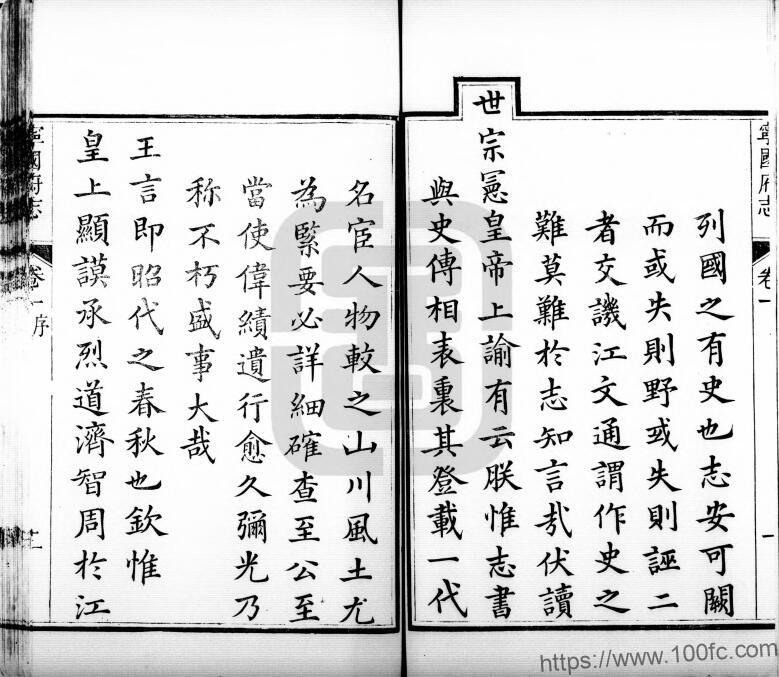 寧國府志
卷一
一
列國之有史也志安可闕
而或失則野或失則誣二
者交譏江文通謂作史之
難莫難於志知言哉伏讀
世宗憲皇帝上諭有云朕惟志書
與史傳相表裏其登載一代
名宦人物較之山川風土尤
為緊要必詳細確查至公至
當使偉績遺行愈久彌光乃
称不朽盛事大哉
王言即昭代之春秋也欽惟
皇上顯謨承烈道濟智周於江
寧國府志
卷一序
https://www.100fc.com